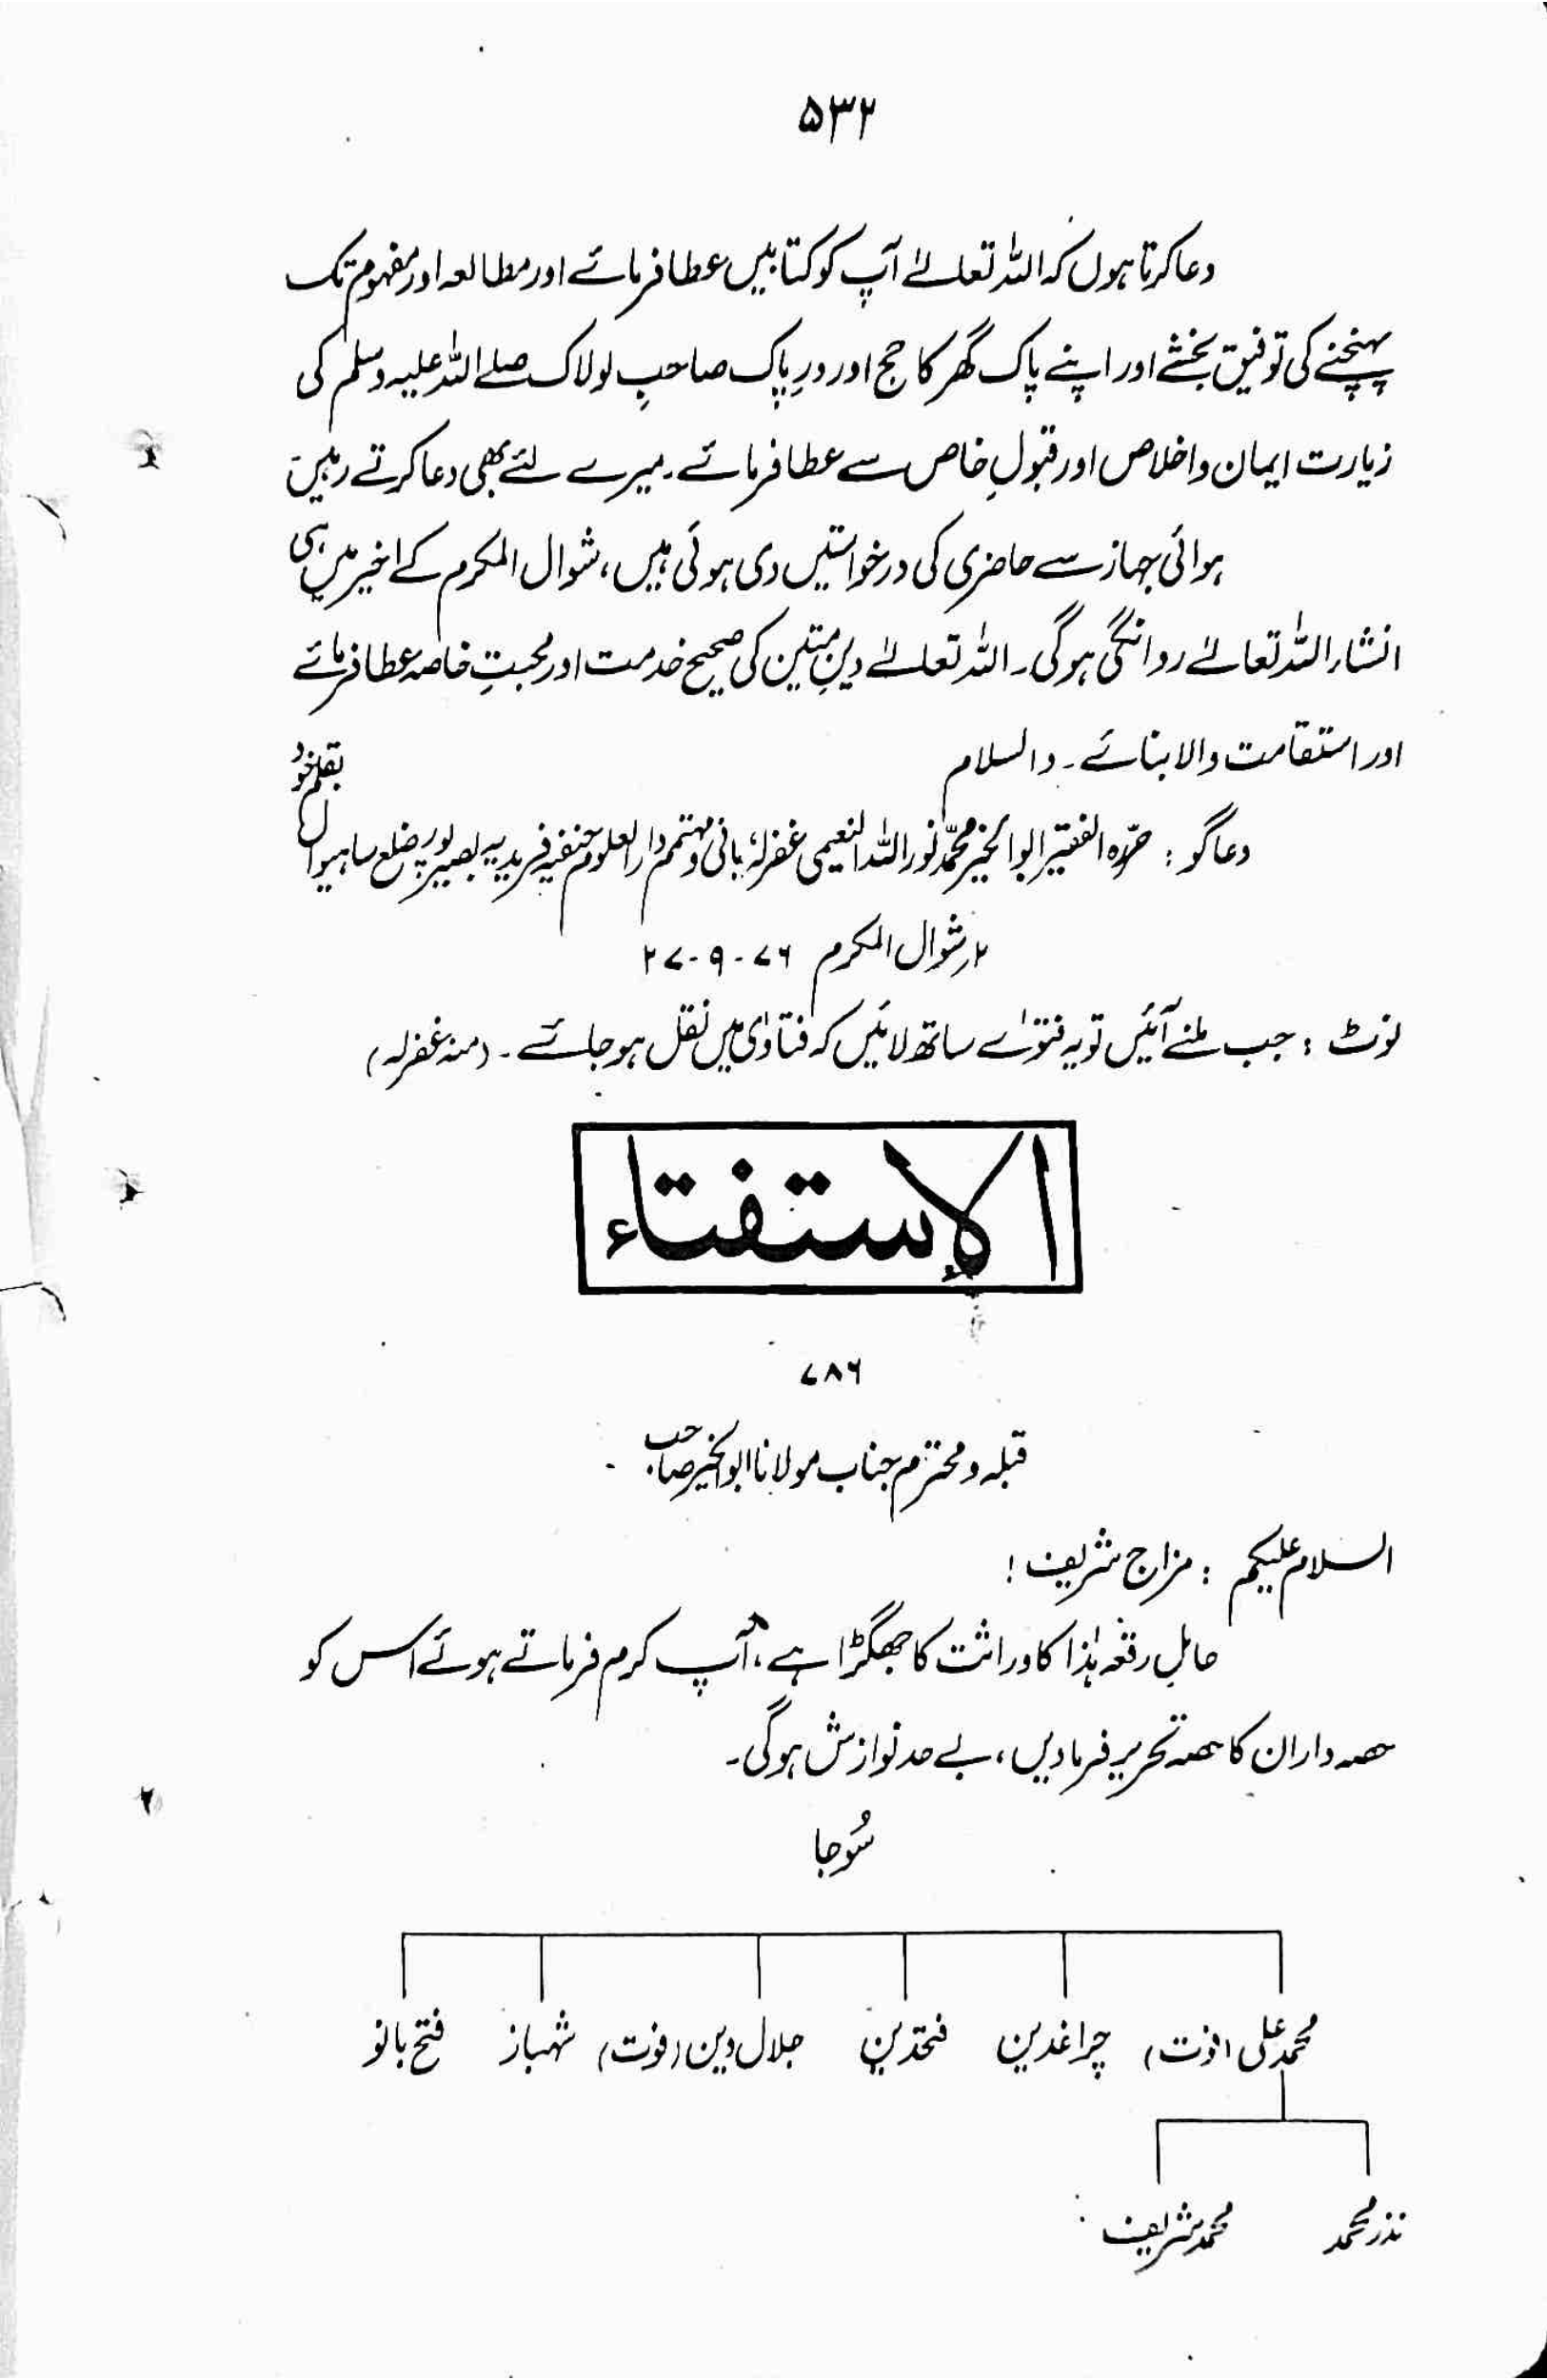 ۵۳۲
دعا کرتا ہوں کہ اللہ تعالےٰ آپ کو کتابیں عطا فرمائے اور مطالعہ اور مفہوم تک
پہنچنے کی توفیق بخشے اور اپنے پاک گھر کا حج اور درِ پاک صاحبِ لولاک صلے اللہ علیہ وسلم کی
زیارت ایمان و اخلاص اور قبولِ خاص سے عطا فرمائے۔ میرے لئے بھی دعا کرتے رہیں
ہوائی جہاز سے حاضری کی درخواستیں دی ہوئی ہیں، شوال المکرم کے اخیر میں ہی
انشاء اللہ تعالےٰ روانگی ہوگی۔ اللہ تعالےٰ دینِ متین کی صحیح خدمت اور محبتِ خاصہ عطا فرمائے
اور استقامت والا بنائے۔ والسلام
بقلم خود
دعاگو : حرّہ الفقیر ابوالخیر محمّد نور اللہ النعیمی غفرلہٗ بانی و مہتمم دارالعلوم حنفیہ فریدیہ بصیرپور ضلع ساہیوال
۲ر شوال المکرم ۷۶-۹-۲۷
نوٹ : جب ملنے آئیں تو یہ فتوٰے ساتھ لائیں کہ فتاوٰی میں نقل ہو جائے۔ (منہ غفرلہ)
الإستفتاء
۷۸۶
قبلہ و محترم جناب مولانا ابوالخیر صاحب
السلام علیکم : مزاج شریف !
حاملِ رقعہ ہٰذا کا وراثت کا جھگڑا ہے، آپ کرم فرماتے ہوئے اس کو
حصہ داران کا حصہ تحریر فرما دیں، بے حد نوازش ہوگی۔
سُوجا
محمد علی (فوت) چراغدین فتحدین جلال دین (فوت) شہباز فتح بانو
نذر محمد محمد شریف